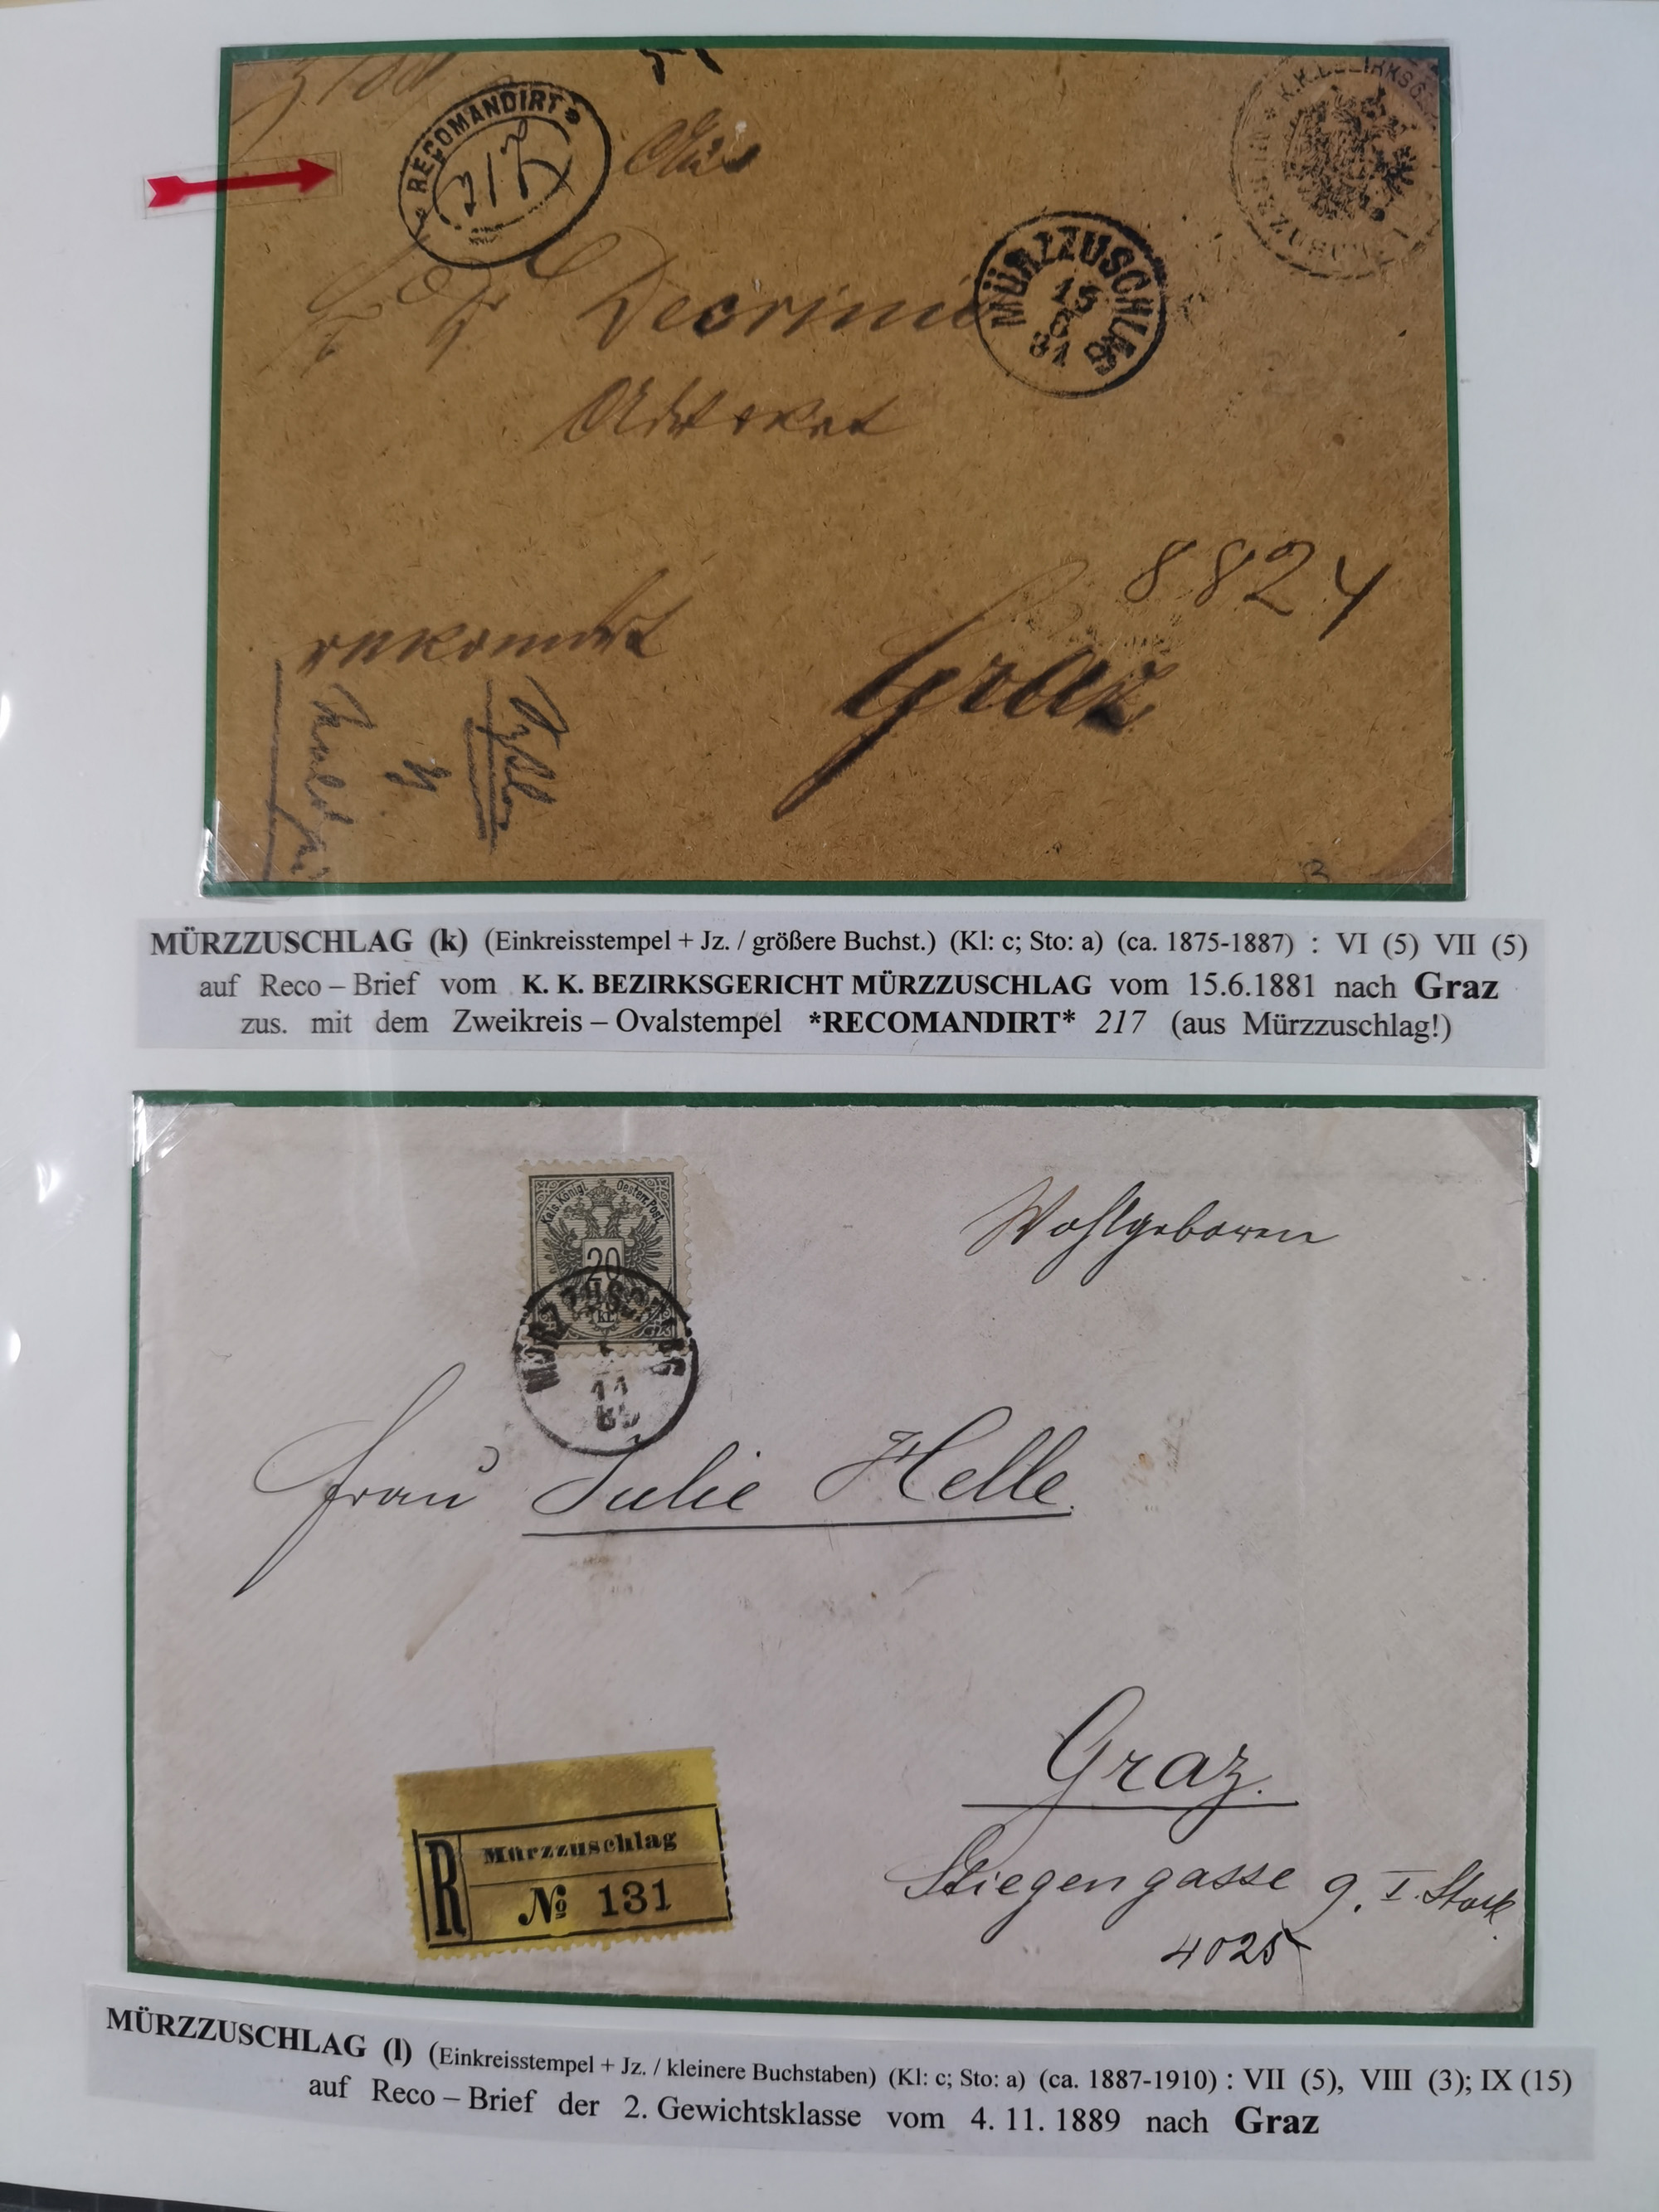 * RECOMANDIRT *
217
K.K. BEZIRKSG
MÜRZZUSCHLAG
15
6
81
Decrinis
Advokat
8824
rekomdt
Graz
MÜRZZUSCHLAG (k) (Einkreisstempel + Jz. / größere Buchst.) (Kl: c; Sto: a) (ca. 1875-1887) : VI (5) VII (5)
auf Reco – Brief vom K. K. BEZIRKSGERICHT MÜRZZUSCHLAG vom 15.6.1881 nach Graz
zus. mit dem Zweikreis – Ovalstempel *RECOMANDIRT* 217 (aus Mürzzuschlag!)
Kais. Königl. Oesterr. Post.
20
kr.
MÜRZZUSCHLAG
4
11
89
Wohlgeboren
Frau Julie Helle.
Graz.
Stiegengasse 9. I. Stock
4025
R Mürzzuschlag
№ 131
MÜRZZUSCHLAG (l) (Einkreisstempel + Jz. / kleinere Buchstaben) (Kl: c; Sto: a) (ca. 1887-1910) : VII (5), VIII (3); IX (15)
auf Reco – Brief der 2. Gewichtsklasse vom 4. 11. 1889 nach Graz